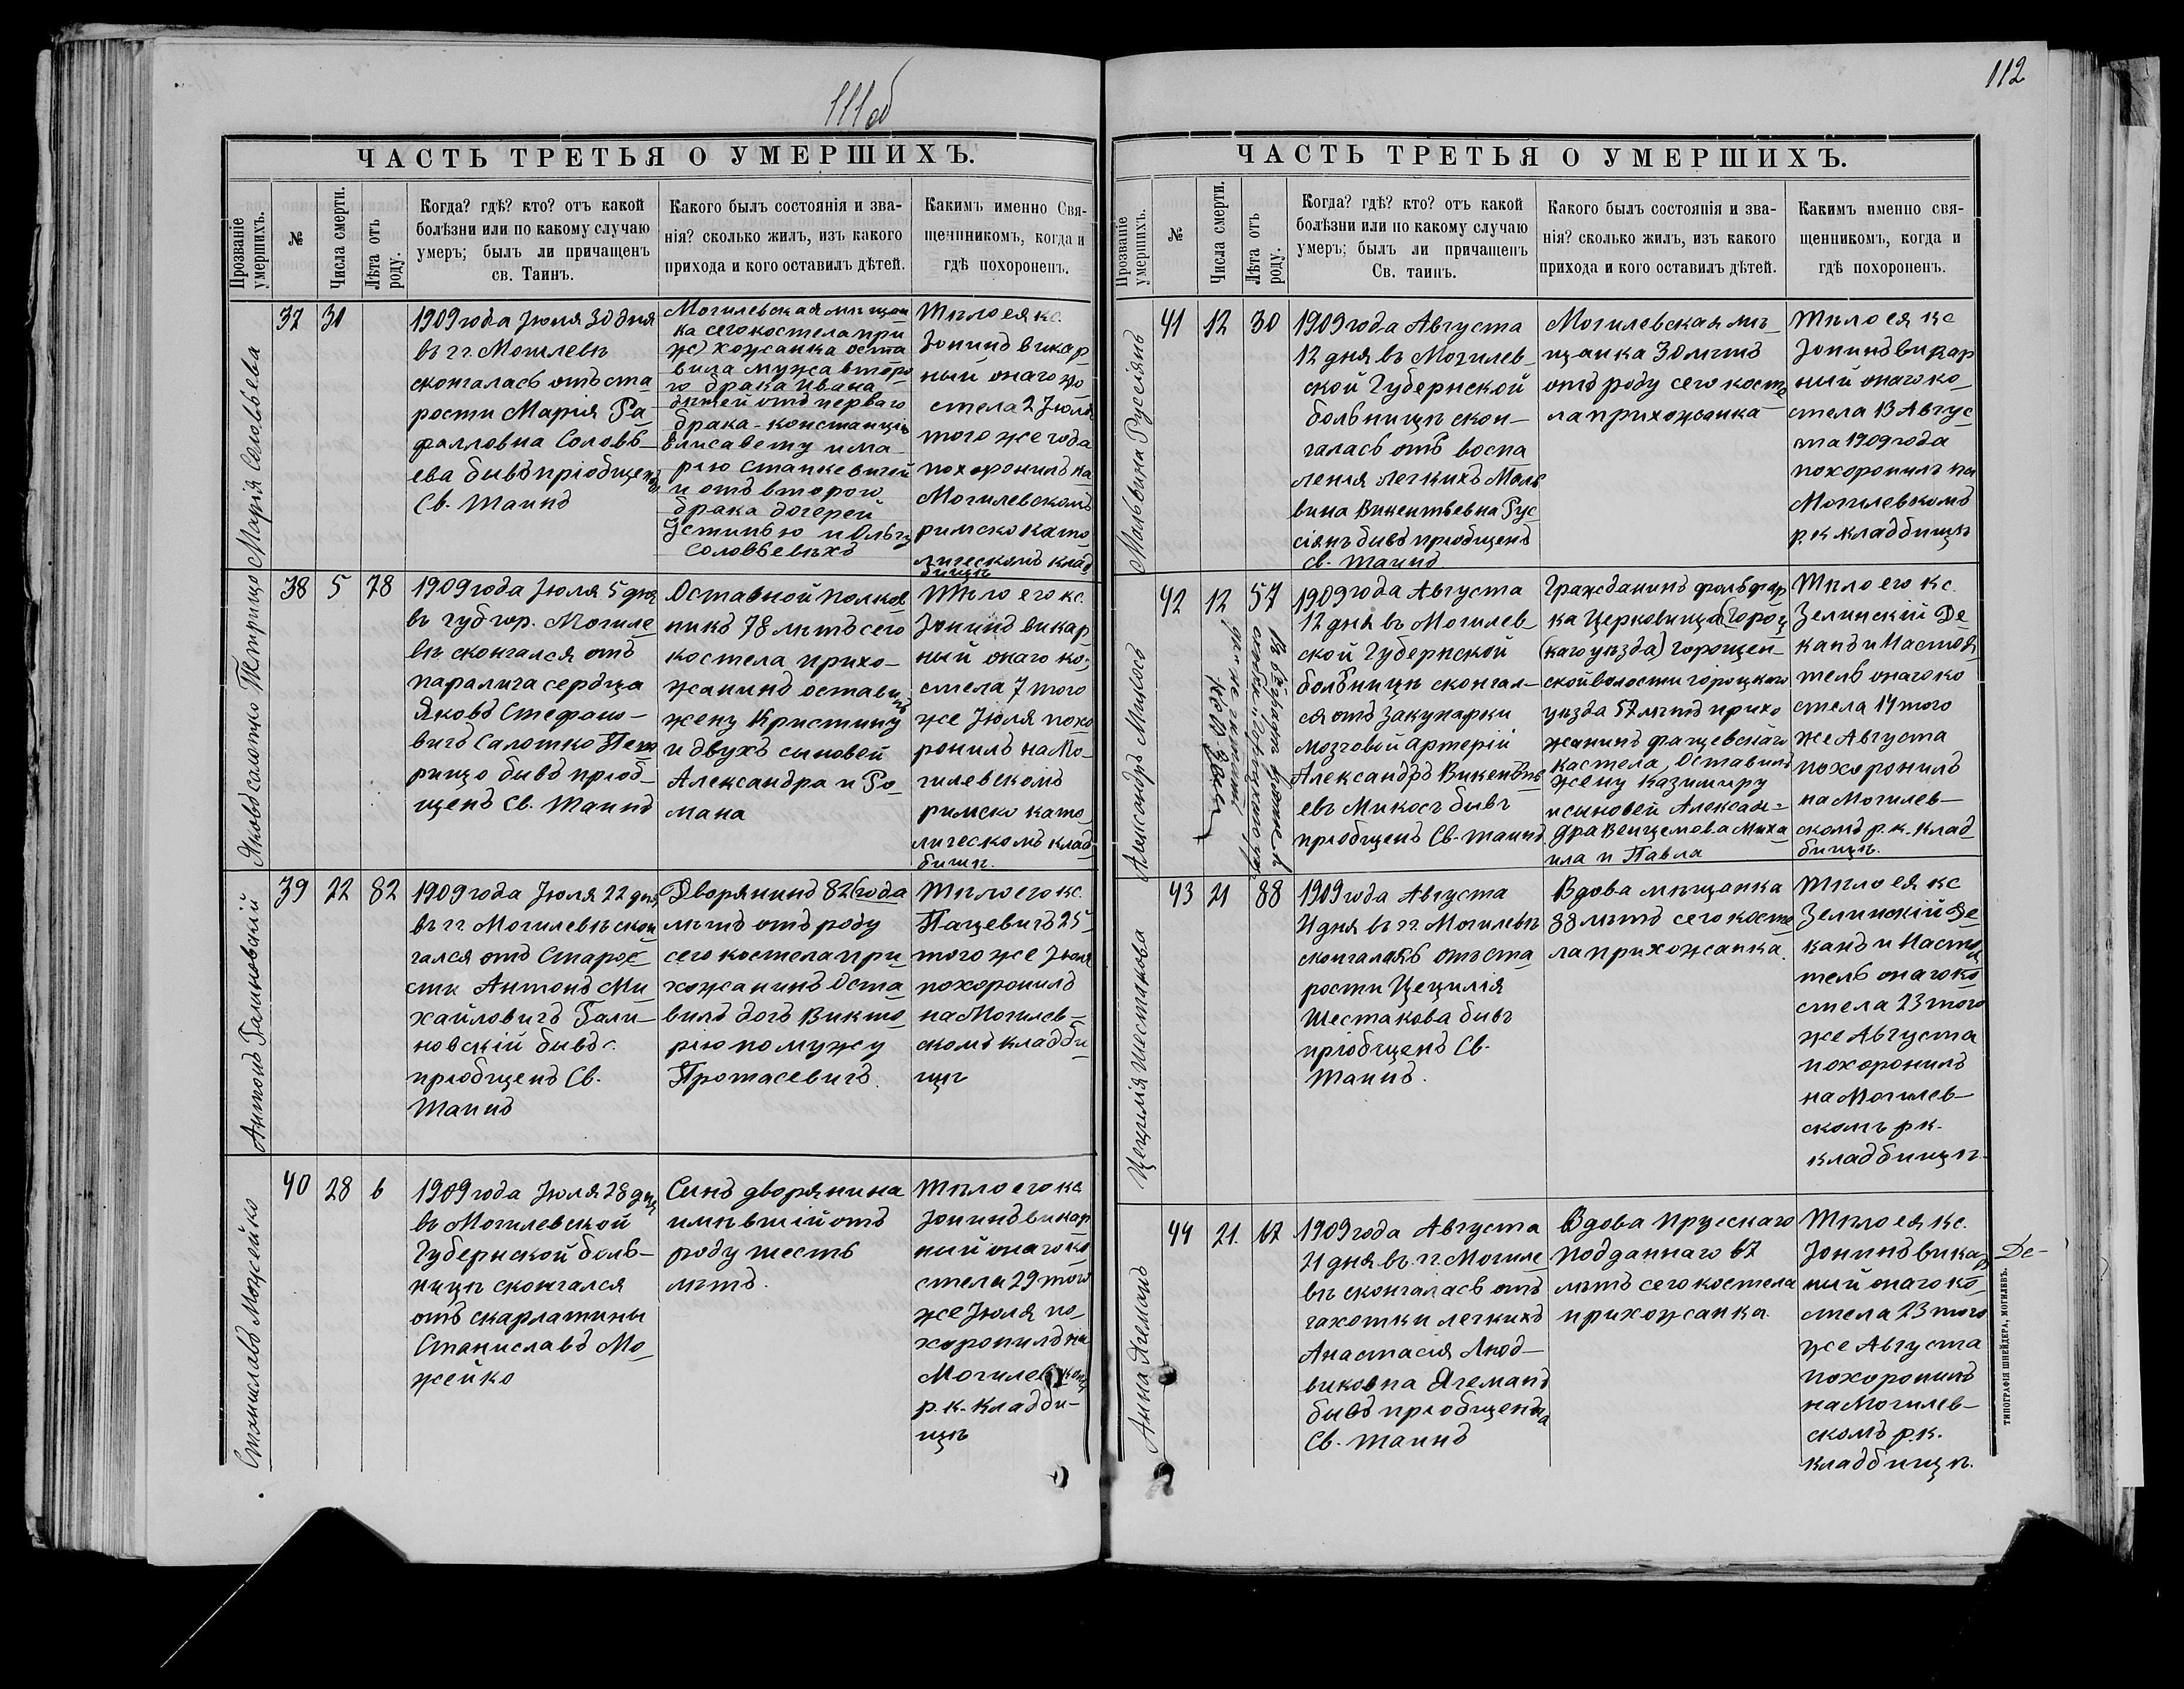 111 об
ЧАСТЬ ТРЕТЬЯ О УМЕРШИХЪ.
Прозваніе умершихъ.
№
Числа смерти.
Лѣта отъ роду.
Когда? гдѣ? кто? отъ какой
болѣзни или по какому случаю
умеръ; былъ ли причащенъ
св. Таинъ.
Какого былъ состоянія и зва-
нія? сколько жилъ, изъ какого
прихода и кого оставилъ дѣтей.
Какимъ именно Свя-
щенникомъ, когда и
гдѣ похороненъ.
Марія Соловьева
37
30
1909 года Іюля 30 дня
въ гг. Могилевѣ
скончалась отъ ста
рости Марія Ра-
фалловна Соловь-
ева бывъ пріобщена
Св. Таинъ
Могилевская мѣщан
ка сего костела при
хожанка оста
вила мужа второ
го брака Ивана
дѣтей отъ перваго
брака - Констанцію
Елисавету и Ма-
рію Станкевичей
и отъ второго
брака дочерей
Устинью и Ольгу
Соловьевыхъ
Тѣло ея кс.
Іонинъ викар
ный онаго ко
стела 2 Іюля
того же года
похоронилъ на
Могилевскомъ
римско като
лическомъ клад
бищѣ
Яковъ Салотко Петрище
38
5
78
1909 года Іюля 5 дня
въ губ гор. Могиле
вѣ скончался отъ
паралича сердца
Яковъ Стефано-
вичъ Салотко Пет
рище бывъ пріоб-
щенъ Св. Таинъ
Оставной полков
никъ 78 лѣтъ сего
костела прихо-
жанинъ оставилъ
жену Кристину
и двухъ сыновей
Александра и Ро-
мана
Тѣло его кс.
Іонинъ викар
ный онаго ко-
стела 7 того
же Іюля похо
ронилъ на Мо-
гилевскомъ
римско като
лическомъ клад
бищѣ.
Антонъ Галиновскій
39
22
82
1909 года Іюля 22 дня
въ гг. Могилевѣ скон
чался отъ Старо-
сти Антонъ Ми-
хайловичъ Гали-
новскій бывъ
пріобщенъ Св.
Таинъ
Дворянинъ 82 года
лѣтъ отъ роду
сего костела при
хожанинъ Оста
вилъ дочь Викто
рію по мужу
Протасевичъ.
Тѣло его кс.
Пацевичъ 25
того же Іюля
похоронилъ
на Могилев-
скомъ кладби
щѣ
Станиславъ Можейко
40
28
6
1909 года Іюля 28 дня
въ Могилевской
Губернской боль-
ницѣ скончался
отъ скарлатины
Станиславъ Мо
жейко
Сынъ дворянина
имѣвшій отъ
роду шесть
лѣтъ.
Тѣло его кс
Іонинъ викар
ный онаго ко
стела 29 того
же Іюля по-
хоронилъ на
Могилевском
р. к. кладби-
щѣ
112
ЧАСТЬ ТРЕТЬЯ О УМЕРШИХЪ.
Прозваніе умершихъ.
№
Числа смерти.
Лѣта отъ роду.
Когда? гдѣ? кто? отъ какой
болѣзни или по какому случаю
умеръ; былъ ли причащенъ
Св. таинъ.
Какого былъ состоянія и зва-
нія? сколько жилъ, изъ какого
прихода и кого оставилъ дѣтей.
Какимъ именно свя-
щенникомъ, когда и
гдѣ похороненъ.
Мальвина Руссіянъ
41
12
30
1909 года Августа
12 дня въ Могилев
ской Губернской
больницѣ скон-
чалась отъ воспа
ленія легкихъ Маль
вина Викентьевна Рус
сіянъ бывъ пріобщенъ
Св. Таинъ
Могилевская мѣ
щанка 30 лѣтъ
отъ роду сего косте
ла прихожанка
Тѣло ея кс
Іонинъ викар
ный онаго ко
стела 13 Авгус
та 1909 года
похоронилъ на
Могилевкомъ
р. к кладбищѣ
Александръ Микосъ
42
12
57
1909 года Августа
12 дня въ Могилев
ской Губернской
больницѣ скончал-
ся отъ закупарки
мозговой артеріи
Александръ Викентьев
евъ Микосъ бывъ
пріобщенъ Св. таинъ.
Гражданинъ фольвар
ка Церковища
(каго уѣзда)
ской волости горецкаго
уѣзда 57 лѣтъ прихо
жанинъ фащевскаго
костела, Оставилъ
жену Казимиру
и сыновей Алексан-
дра Венцемова Миха
ила и Павла
Тѣло его кс.
Зелинскій Де
канъ и Настоя
тель онаго ко
стела 14 того
же Августа
похоронилъ
на Могилев-
скомъ р. к. клад
бищѣ.
Цецилія Шестакова
43
21
88
1909 года Августа
21 дня въ гг. Могилевѣ
скончалась отъ ста
рости Цецилія
Шестакова бывъ
пріобщенъ Св.
Таинъ.
Вдова мѣщанка
88 лѣтъ сего косте
ла прихожанка.
Тѣло ея кс
Зелинскій Де
канъ и Настоя
тель онаго ко
стела 23 того
же Августа
похоронилъ
на Могилев-
скомъ р к.
кладбищѣ.
Анна Ягеманъ
44
21.
67
1909 года Августа
21 дня въ гг. Могиле
вѣ скончалась отъ
чахотки легкихъ
Анастасія Люд-
виковна Ягеманъ
бывъ пріобщенна
Св. таинъ
Вдова Прускаго
подданнаго 67
лѣтъ сего костела
прихожанка.
Тѣло ея кс.
Іонинъ викар
ный онаго ко
стела 23 того
же Августа
похоронилъ
на Могилев-
скомъ р.к.
кладбищѣ.
Де-
ТИПОГРАФІЯ ШНЕЙДЕРА, МОГИЛЕВЪ.